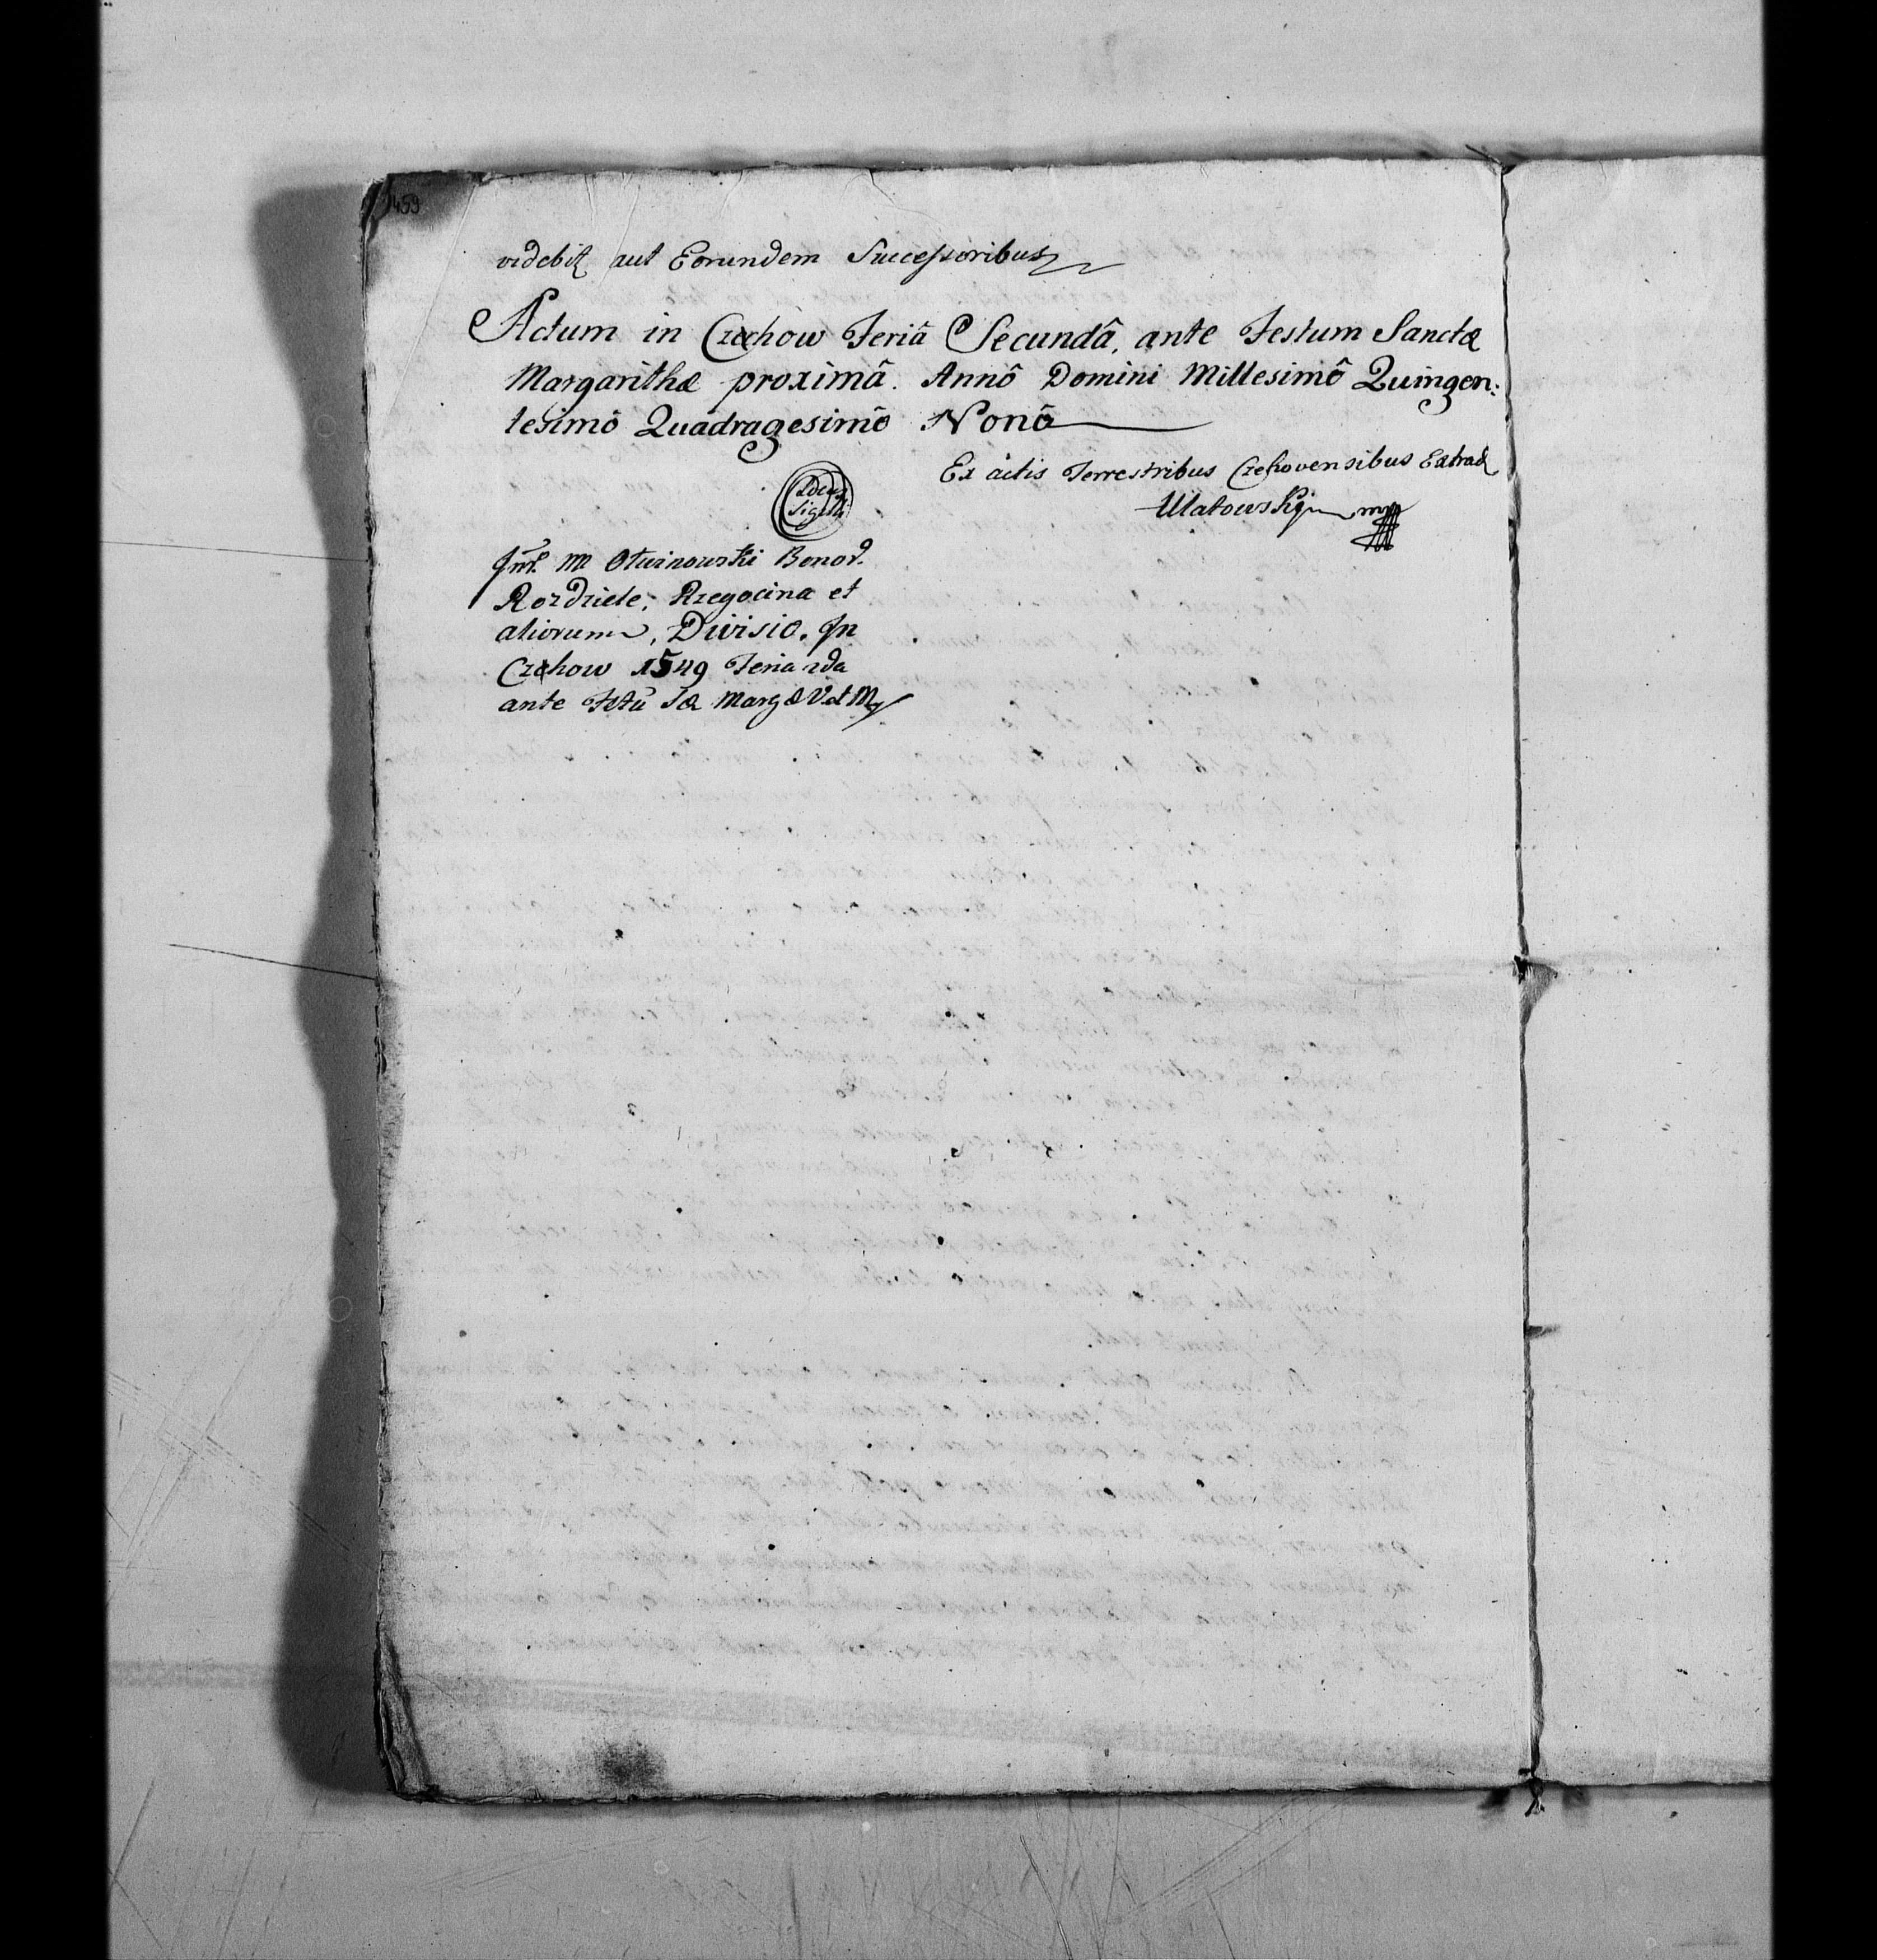 459
videbit aut Eorundem Successoribus
Actum in Czchow Feriâ Secundâ, ante Festum Sanctæ
Margarithæ proximâ. Annô Domini Millesimô Quingen:
tesimô Quadragesimô Nonô
Ex actis Terrestribus Czchovensibus Extrad
Locus
Sigilli
Ulatowski mp
M Otwinowski Bonor.
Rozdziele, Rzegocina et
aliorum, Divisio. In
Czchow 1549 Feria 2da
ante Fstū Sæ Margæ V et M